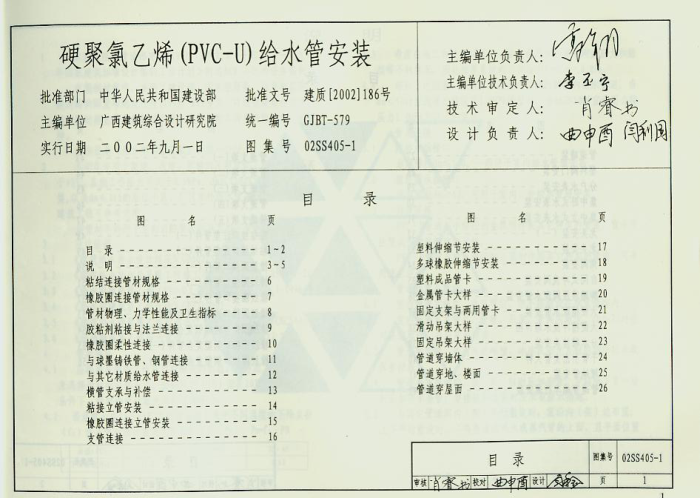 硬聚氯乙烯(PVC-U)给水管安装
批准部门 中华人民共和国建设部 批准文号 建质[2002]186号
主编单位 广西建筑综合设计研究院 统一编号 GJBT-579
实行日期 二00二年九月一日 图集号 02SS405-1
主编单位负责人：
主编单位技术负责人：
技术审定人： 肖睿书
设计负责人： 曲申酉 闫利国
目 录
图 名 页
目录 1-2
说明 3-5
粘结连接管材规格 6
橡胶圈连接管材规格 7
管材物理、力学性能及卫生指标 8
胶粘剂粘接与法兰连接 9
橡胶圈柔性连接 10
与球墨铸铁管、钢管连接 11
与其它材质给水管连接 12
横管支承与补偿 13
粘接立管安装 14
橡胶圈连接立管安装 15
支管连接 16
图 名 页
塑料伸缩节安装 17
多球橡胶伸缩节安装 18
塑料成品管卡 19
金属管卡大样 20
固定支架与两用管卡 21
滑动吊架大样 22
固定吊架大样 23
管道穿墙体 24
管道穿地、楼面 25
管道穿屋面 26
目 录 图集号 02SS405-1
审核 肖睿书 校对 曲申酉 设计 页 1
1